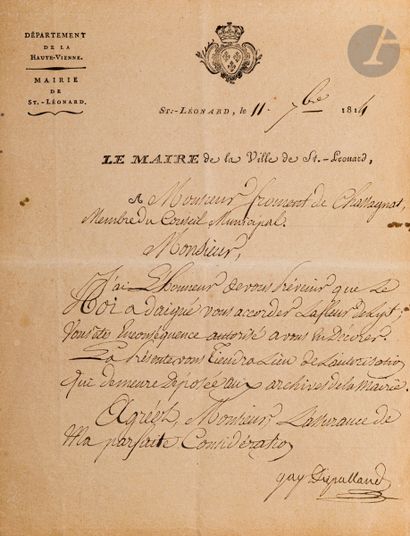 DÉPARTEMENT
DE LA
HAUTE-VIENNE.
MAIRIE
DE
ST.-LÉONARD.
ST.-LÉONARD, le 11. 7bre 1814
LE MAIRE de la Ville de St.-Léonard,
A Monsieur froment de Chassagnat,
Membre du Conseil Municipal.
Monsieur,
J'ai L'honneur de vous prévenir que Le
Roi a daigné vous accorder La fleur de Lys;
Vous êtes En conséquence autorisé a vous En Décorer.
La présente vous Tiendra Lieu de L'autorisation
Qui demeure Déposée aux archives de la Mairie.
Agréez, Monsieur L'assurance de
Ma parfaite Considération
gay